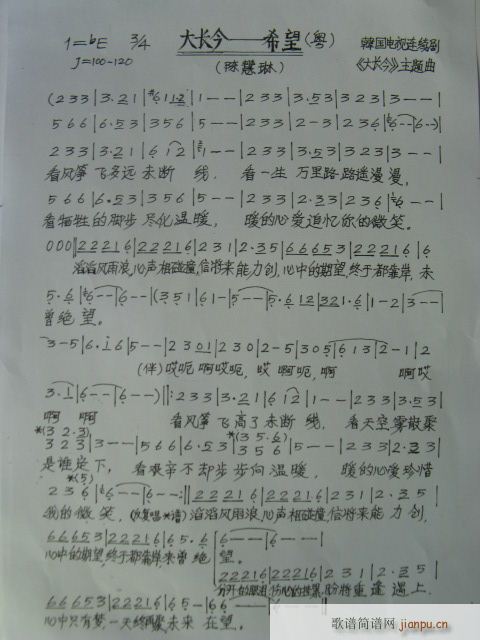 1=bE 3/4 大长今——希望(粤) 韓国电视连续剧
J=100-120 (陈慧琳) 《大长今》主题曲
(2 3 3|3·2 1|6 1 1 2|1--|2 3 3|3·5 3|3 2 3|3--|
5 6 6|6·5 3|3 5 6|5--|2 3 3|2-3|2 3 6|6--|6--)|
2 3 3|3·2 1|6 1 2|1--|2 3 3|3·5 3|3 2 3|3--|
看风筝 飞多远 未断 线. 看一生 万里路路遥漫漫,
5 6 6|6·5 3|3 5 6|5--|2 3 3|2·3 3|2 3 6|6--|
看牺牲的脚步 尽化温暖, 暖的心爱追忆你的微笑。
0 0 0||2 2 2 1 6|2 2 2 1 6|2 3 1|2·3 5|6 6 6 5 3|2 2 2 1 6|6
滔滔风雨浪,心声相碰撞,信将来能力创,心中的期望,终于都靠岸,未
5·6|6--|6--|(3 5 1|6 1-|5--|5·6 1 2|3 2 1·6|1-2|3--|
曾绝望。
3-5|6·i 6|5--|2 3 0 1|2 3 0|2-5|3 0 5|6 1 3|2-1|2
(伴)哎呃 啊哎呃,哎 啊呃,啊 啊哎
3·1|6--|6--)||:2 3 3|3·2 1|6 1 2|1--|2 3 3|3·5 3|
啊 啊 看风筝 飞高了 未断 线, 看天空,零散聚
*(3 2·3) *(3 5·6)
3 2 3|3--|5 6 6|6·5 3|3 5 6|5--|2 3 3|2·3 3|
是谁定下, 看艰辛不却步 步向温暖, 暖的心爱珍惜
*(5)
2 3 6|6--|6--:||2 2 2 1 6|2 2 2 1 6|2 3 1|2·3 5|
我的微笑, (反复唱*谱) 滔滔风雨浪,心声相碰撞,信将来能力创,
6 6 6 5 3|2 2 2 1 6|6 5·6|6--|6--|
心中的期望,终于都靠岸未曾绝 望。
2 2 2 1 6|2 2 2 1 6|2 3 1|2·3 5|
盼将重逢遇上.
6 6 6 5 3|2 2 2 1 6|6 5-|6 6--|6--||
心中只有梦一天终再聚未来 在望.
歌谱简谱网
jianpu.cn